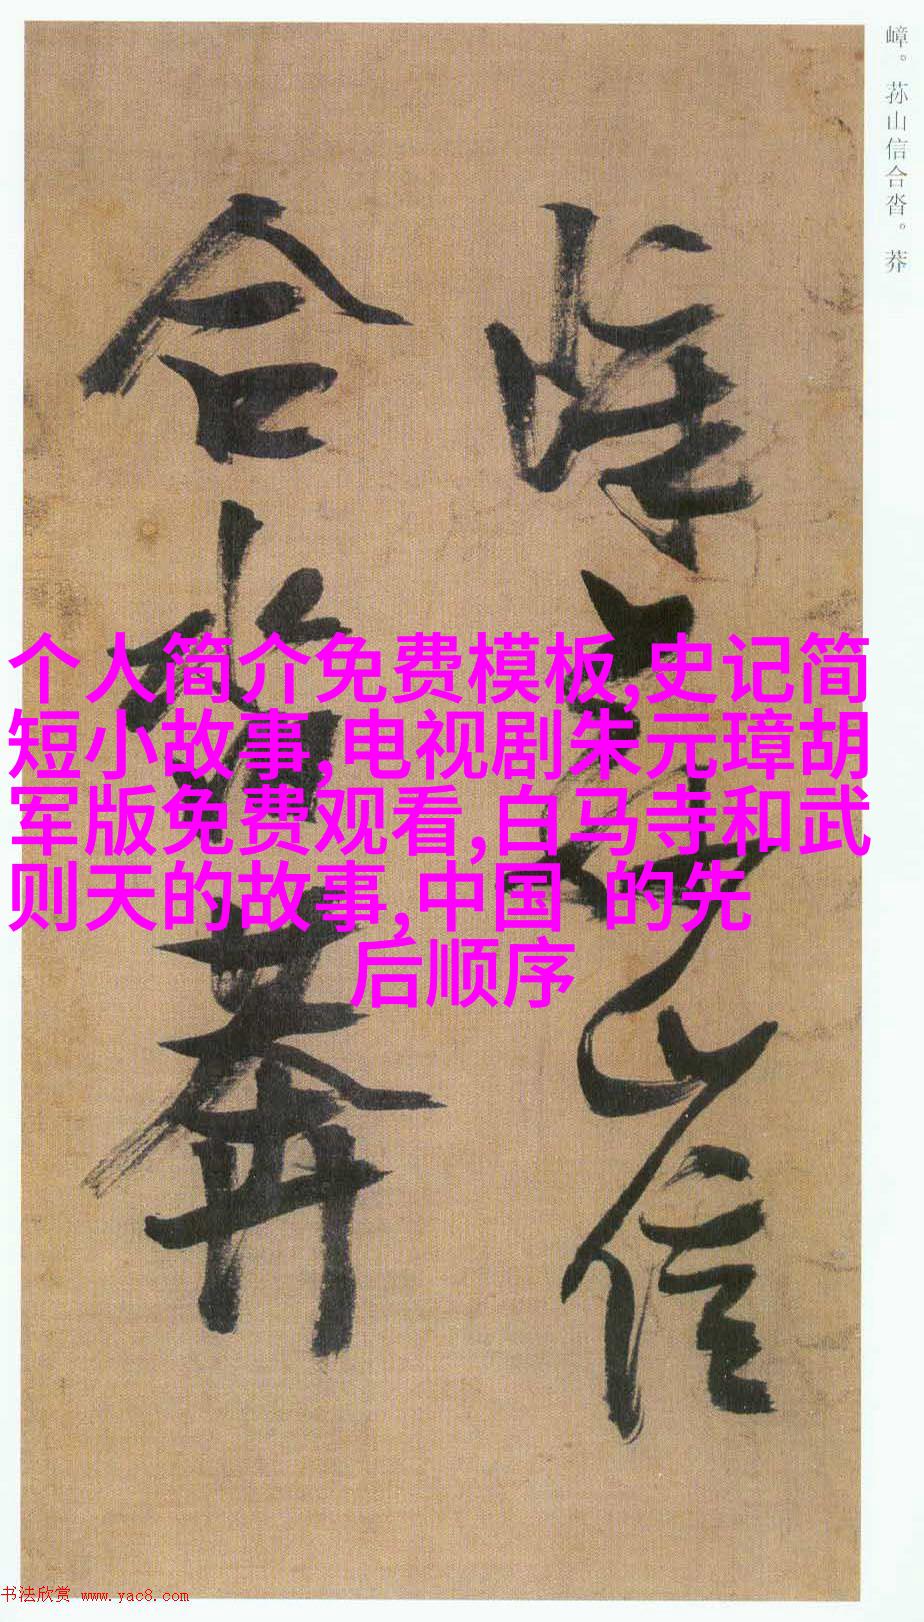 嶂。荪山信合沓。莽
嶂荪山信
合沓莽
个人简介免费模板,史记简
短小故事,电视剧朱元璋胡
军版免费观看,白马寺和武
则天的故事,中国 的先
后顺序
书法欣赏 www.yac8.com